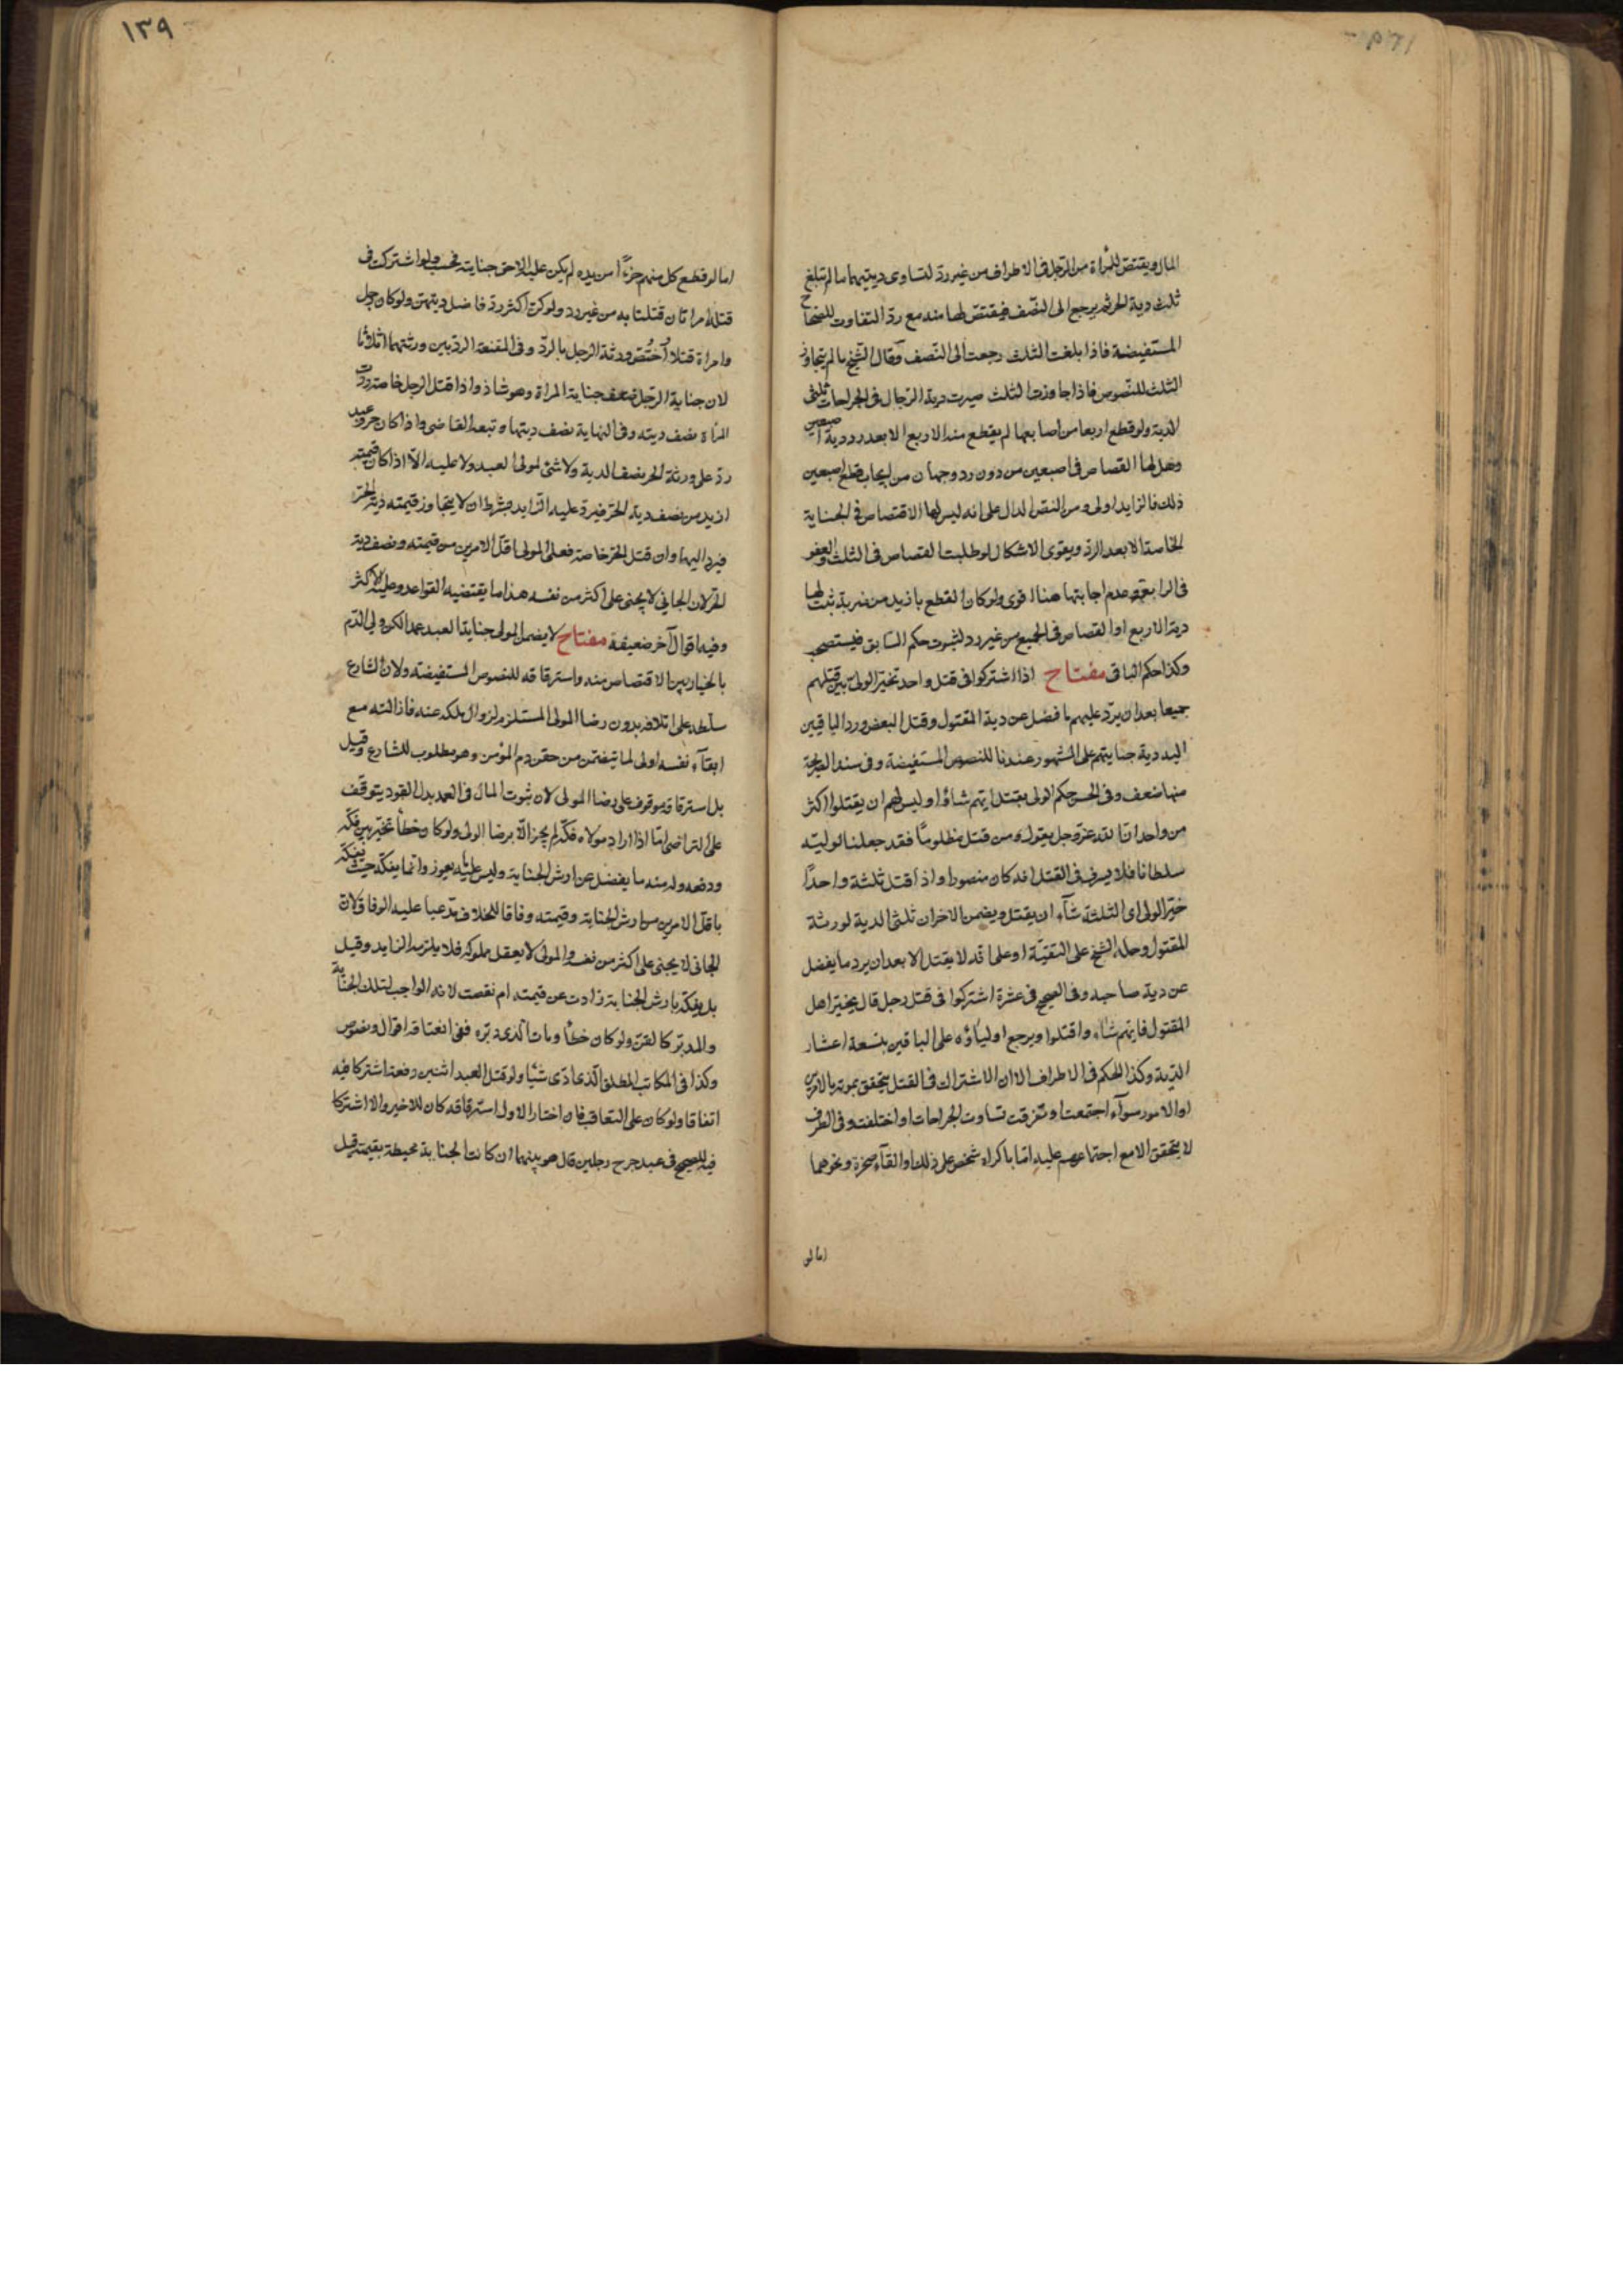 المال ويقتص للمرأة من الرجل فى الاطراف من غير رد لتساوى ديتيهما ما لم تبلغ
ثلث دية الحر ثم يرجع الى النصف فيقتص لها منه مع رد التفاوت للصحاح
المستفيضة فاذا بلغت الثلث رجعت الى النصف وقال الشيخ ما لم يتجاوز
الثلث للنصوص فاذا جاوزت الثلث صيرت دية الرجال فى الجراحات ثلثى
الدية ولو قطع اربعا من اصابعها لم يقطع منه الاربع الا بعد رد دية اصبعين
وهل لها القصاص فى اصبعين من دون رد وجهان من ايجاب قطع اصبعين
ذلك فالزايد اولى ومن النص الدال على انه ليس لها الاقتصاص فى الجناية
الخاصة الا بعد الرد ويقوى الاشكال لو طلبت القصاص فى الثلث والعفو
فى الرابعة وعدم اجابتها هنا اقوى ولو كان القطع بازيد من ضربة ثبت لها
دية الاربع او القصاص فى الجميع من غير رد لثبوت حكم السابق فيستصحب
وكذا حكم الباقى مفتاح اذا اشتركوا فى قتل واحد تخير الولى بين قتلهم
جميعا بعد ان يرد عليهم ما فضل عن دية المقتول وقتل البعض ورد الباقين
اليه دية جنايتهم على المشهور عندنا للنصوص المستفيضة وفى سند الصريحة
منها ضعف وفى الحسن حكم الولى بقتل ايهم شاؤا وليس لهم ان يقتلوا اكثر
من واحد ان الله عز وجل يقول ومن قتل مظلوما فقد جعلنا لوليه
سلطانا فلا يسرف فى القتل انه كان منصورا واذا قتل ثلثة واحدا
خير الولى اى الثلثة شآء ان يقتل ويضمن الاخران ثلثى الدية لورثة
المقتول وحمله الشيخ على التقية او على انه لا يقتل الا بعد ان يرد ما يفضل
عن دية صاحبه وفى الصحيح فى عشرة اشتركوا فى قتل رجل قال يخير اهل
المقتول فايهم شآء وا قتلوا ويرجع اولياؤه على الباقين بتسعة اعشار
الدية وكذا الحكم فى الاطراف الا ان الاشتراك فى القتل يتحقق بموته بالامرين
او الامور سوآء اجتمعت او تفرقت تساوت الجراحات او اختلفت وفى الطرف
لا يتحقق الا مع اجتماعهم عليه اما باكراه شخص على ذلك او القآء صخرة ونحوهما
اما لو
١٣٩
اما لو قطع كل منهم جزءا من يده لم يكن عليه الا حق جنايته فحسب ولو اشتركت فى
قتله امراتان قتلتا به من غير رد ولو كن اكثر رد فاضل ديتهن ولو كان رجل
وامراة قتلا اختص ورثة الرجل بالرد وفى المقنعة الرد بين ورثتهما اثلاثا
لان جناية الرجل ضعف جناية المراة وهو شاذ واذا قتل الرجل خاصة ردت
المراة نصف ديته وفى النهاية نصف ديتها وتبعه القاضى واذا كان حر وعبد
رد على ورثة الحر نصف الدية ولا شئ لمولى العبد ولا عليه الا اذا كان قيمته
ازيد من نصف دية الحر فيرد عليه الزايد بشرط ان لا يتجاوز قيمته دية الحر
فيرد اليها وان قتل الحر خاصة فعلى المولى اقل الامرين من قيمته ونصف دية
الحر لان الجانى لا يجنى على اكثر من نفسه هذا ما يقتضيه القواعد وعليه الاكثر
وفيه اقوال آخر ضعيفة مفتاح لا يضمن المولى جناية العبد عمدا لكن ولى الدم
بالخيار بين الاقتصاص منه واسترقاقه للنصوص المستفيضة ولان الشارع
سلطه على اتلافه بدون رضا المولى المستلزم لزوال ملكه عنه فازالته مع
ابقآء نفسه اولى لما يتضمن من حقن دم المؤمن وهو مطلوب للشارع وقيل
بل استرقاقه موقوف على رضا المولى لان ثبوت المال فى العمد بدل القود يتوقف
على التراضى اما اذا اراد مولاه فكه لم يجز الا برضا الولى ولو كان خطأ تخير بين فكه
ودفعه وله منه ما يفضل عن ارش الجناية وليس عليه ما يعوز وانما يفكه حيث يفكه
باقل الامرين من ارش الجناية وقيمته وفاقا للخلاف مدعيا عليه الوفاق لان
الجانى لا يجنى على اكثر من نفسه والمولى لا يعقل مملوكه فلا يلزمه الزايد وقيل
بل يفكه بارش الجناية زادت عن قيمته ام نقصت لانه الواجب لتلك الجناية
والمدبر كالقن ولو كان خطأ ومات الذى دبره ففى انعتاقه اقوال ونصوص
وكذا فى المكاتب المطلق الذى ادى شيئا ولو قتل العبد اثنين دفعة اشتركا فيه
اتفاقا ولو كان على التعاقب فان اختار الاول استرقاقه كان للاخير والا اشتركا
فيه للصحيح فى عبد جرح رجلين قال هو بينهما ان كانت الجناية محيطة بقيمته قيل